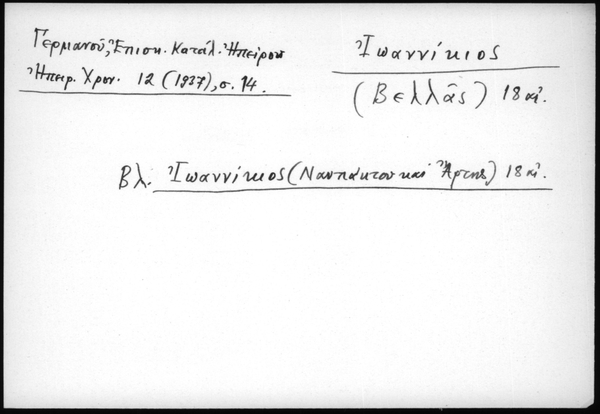 Γερμανοῦ, Ἐπισκ. Κατάλ. Ἠπείρου
Ἠπειρ. Χρον. 12 (1937), σ. 14.
Ἰωαννίκιος
(Βελλᾶς) 18 αἰ.
Βλ. Ἰωαννίκιος (Ναυπάκτου καὶ Ἄρτης) 18 αἰ.